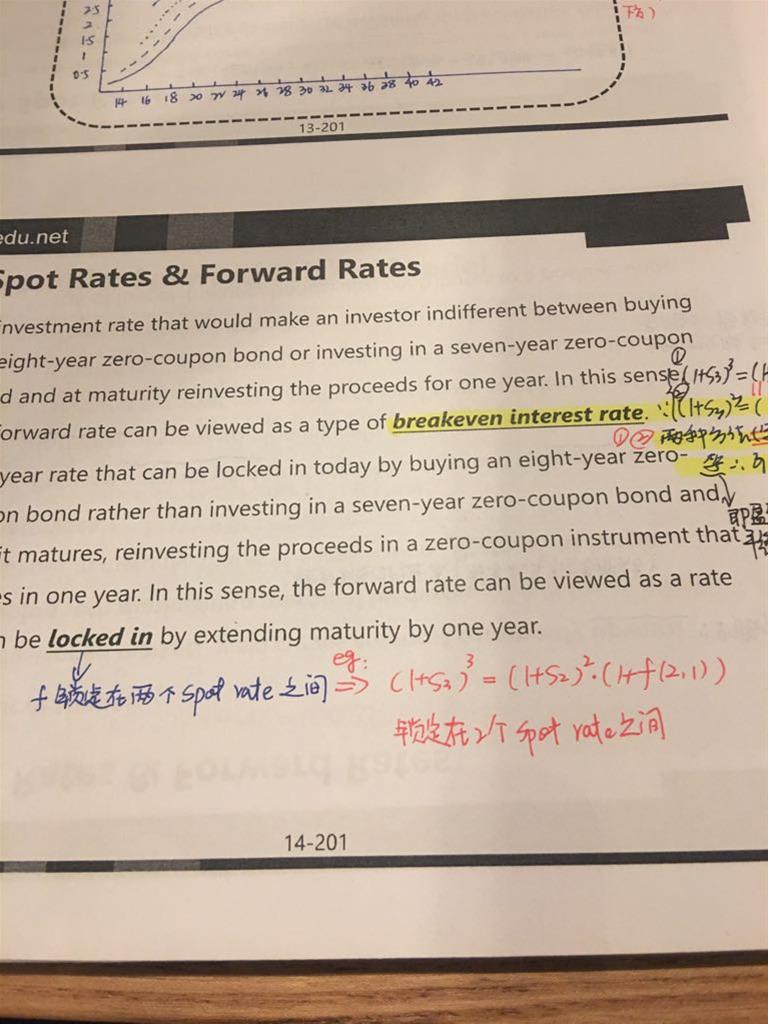 2.5
2
1.5
1
0.5
14 16 18 20 22 24 26 28 30 32 34 36 38 40 42
下方）
13-201
edu.net
Spot Rates & Forward Rates
investment rate that would make an investor indifferent between buying
eight-year zero-coupon bond or investing in a seven-year zero-coupon
d and at maturity reinvesting the proceeds for one year. In this sense,
① (1+S₃)³=(1
forward rate can be viewed as a type of breakeven interest rate.
∵ ② (1+S₃)²=(
①② 两种方法
year rate that can be locked in today by buying an eight-year zero-
∴
on bond rather than investing in a seven-year zero-coupon bond and
即盈
it matures, reinvesting the proceeds in a zero-coupon instrument that
s in one year. In this sense, the forward rate can be viewed as a rate
n be locked in by extending maturity by one year.
f 锁定在两个 spot rate 之间 eg: ⇒ (1+S₃)³ = (1+S₂)²·(1+f(2,1))
锁定在2个 spot rate 之间
14-201